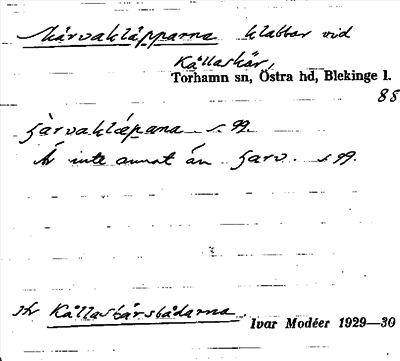 Skårvakläpparna klabbar vid
Kållaskär,
Torhamn sn, Östra hd, Blekinge l.
88
s. 99.
Är inte annat än s 99.
Kållaskärsbådarna.
Ivar Modéer 1929—30